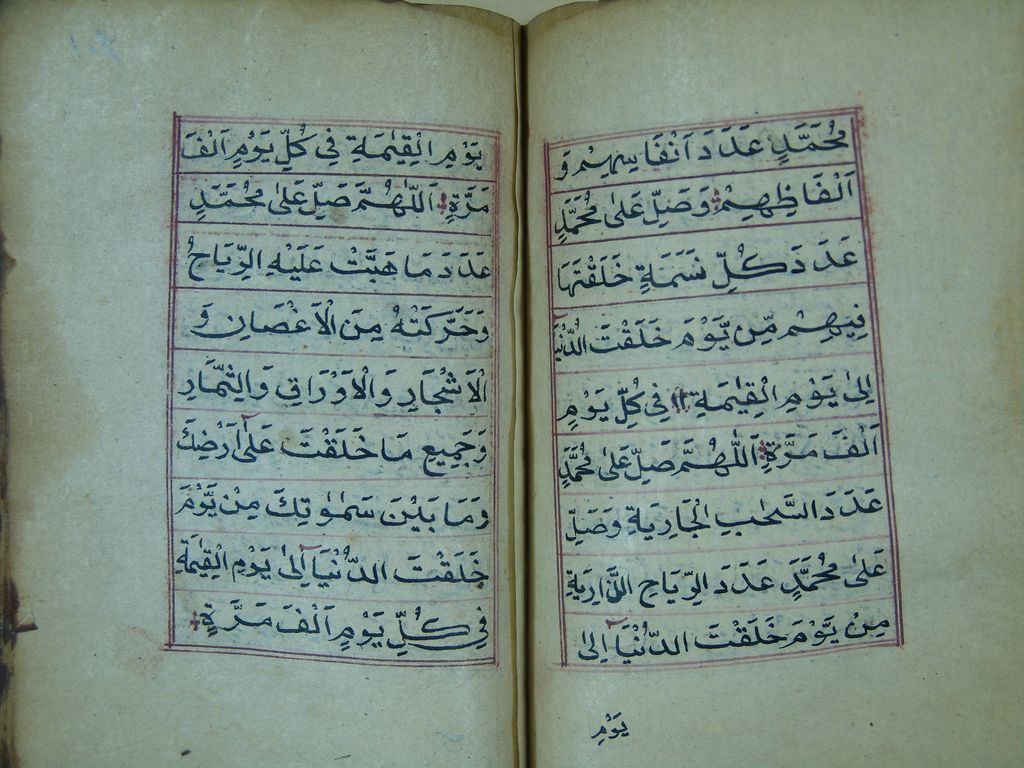 مُحَمَّدٍ عَدَدَ اَنْفَاسِهِمْ وَ
اَلْفَاظِهِمْ وَصَلِّ عَلٰى مُحَمَّدٍ
عَدَدَ كُلِّ نَسَمَةٍ خَلَقْتَهَا
فِيهِمْ مِّن يَّوْمَ خَلَقْتَ الدُّنْيَا
اِلىٰ يَوْمِ الْقِيٰمَةِ فِى كُلِّ يَوْمٍ
اَلْفَ مَرَّةٍ اَللّٰهُمَّ صَلِّ عَلٰى مُحَمَّدٍ
عَدَدَ السَّحٰبِ الْجَارِيَةِ وَصَلِّ
عَلىٰ مُحَمَّدٍ عَدَدَ الرِّيَاحِ الذَّارِيَةِ
مِنْ يَّوْمَ خَلَقْتَ الدُّنْيَآ اِلىٰ
يَوْمِ
يَوْمِ الْقِيٰمَةِ فِى كُلِّ يَوْمٍ اَلْفَ
مَرَّةٍ اَللّٰهُمَّ صَلِّ عَلىٰ مُحَمَّدٍ
عَدَدَ مَا هَبَّتْ عَلَيْهِ الرِّيَاحُ
وَحَرَّكَتْهُ مِنَ الْاَغْصَانِ وَ
الْاَشْجَارِ وَالْاَوْرَاقِ وَالثِّمَارِ
وَجَمِيعِ مَا خَلَقْتَ عَلٰٓى اَرْضِكَ
وَمَا بَيْنَ سَمٰوٰتِكَ مِنْ يَّوْمَ
خَلَقْتَ الدُّنْيَآ اِلىٰ يَوْمِ الْقِيٰمَةِ
فِى كُلِّ يَوْمٍ اَلْفَ مَرَّةٍ